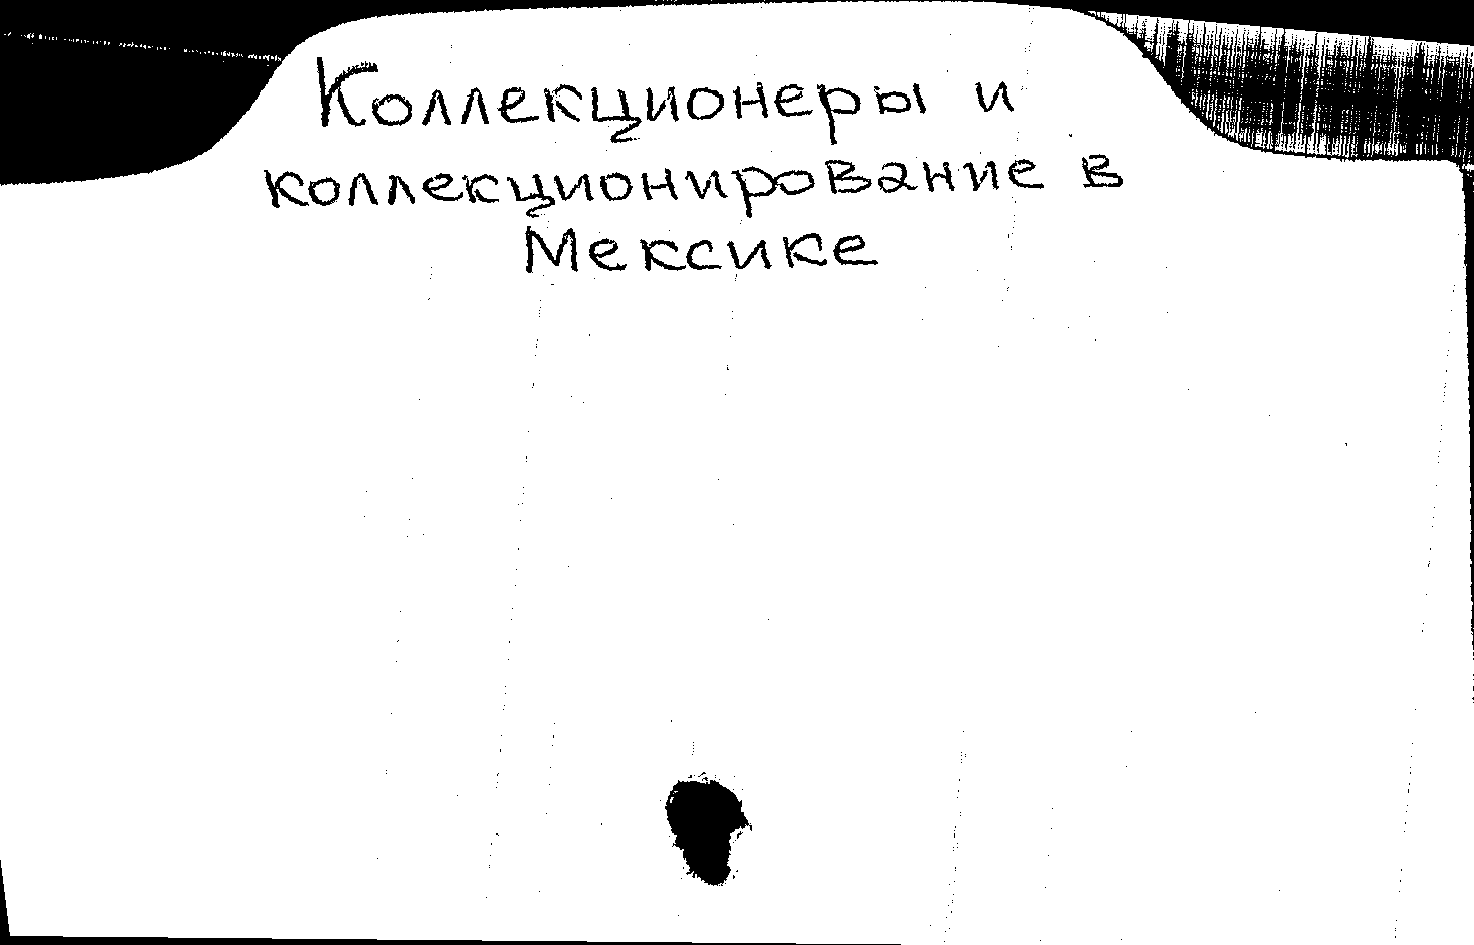 Коллекционеры и
коллекционирование в
Мексике